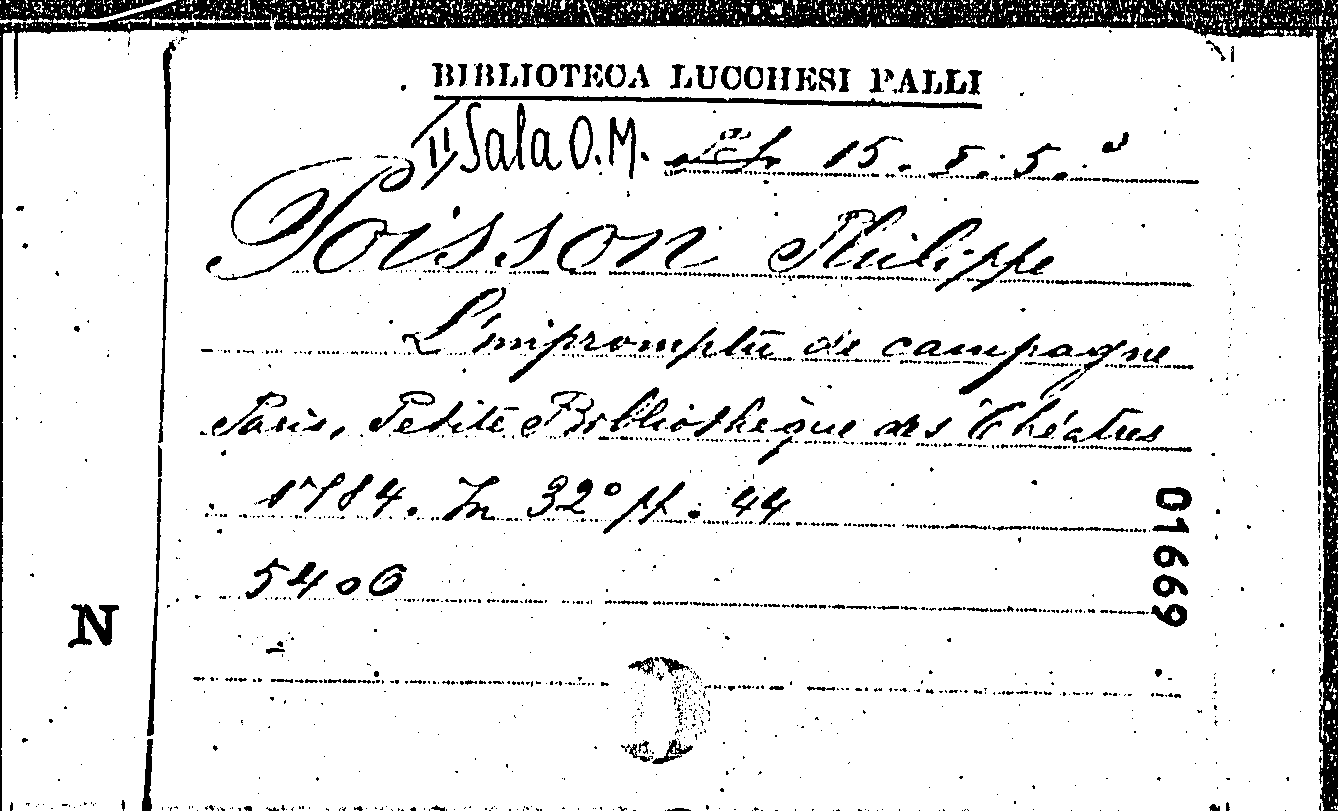 BIBLIOTECA LUCCHESI PALLI
II Sala O.M. 15. 5. 5.
Poisson Philippe
L'impromptu de campagne
Paris, Petite Bibliothèque des Théatres
1784. In 32° pp. 44
5400
01669
N